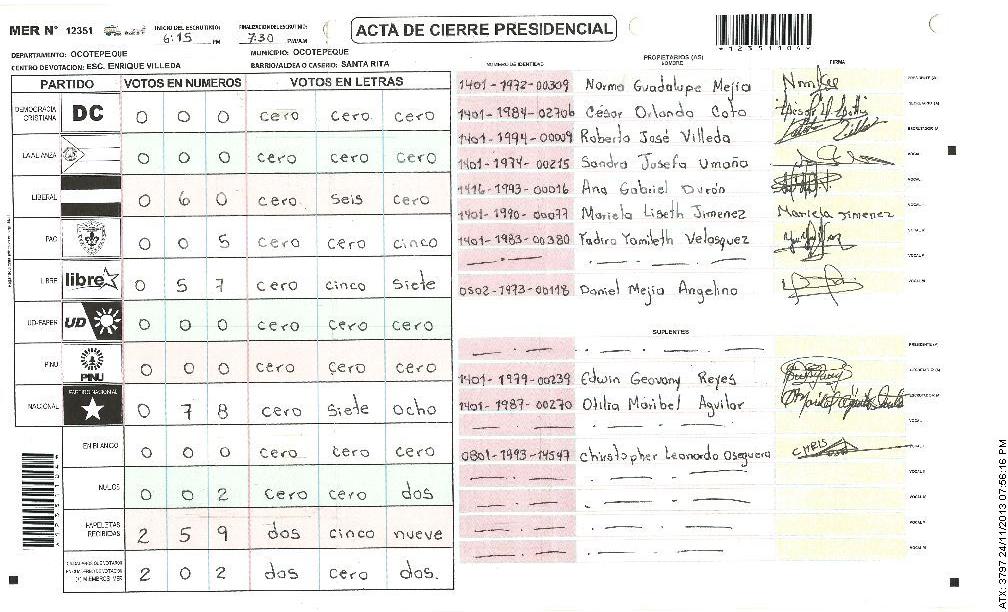 MER N° 12351
INICIO DEL ESCRUTINIO: 6:15 PM
FINALIZACION DEL ESCRUTINIO: 7:30 PM/AM
ACTA DE CIERRE PRESIDENCIAL
DEPARTAMENTO: OCOTEPEQUE
MUNICIPIO: OCOTEPEQUE
CENTRO DE VOTACION: ESC. ENRIQUE VILLEDA
BARRIO/ALDEA O CASERIO: SANTA RITA
PARTIDO VOTOS EN NUMEROS VOTOS EN LETRAS
DEMOCRACIA CRISTIANA DC 0 0 0 cero cero cero
LA ALIANZA 0 0 0 cero cero cero
LIBERAL 0 6 0 cero seis cero
PAC 0 0 5 cero cero cinco
LIBRE libre 0 5 7 cero cinco siete
UD-FAPER UD 0 0 0 cero cero cero
PINU PINU 0 0 0 cero cero cero
NACIONAL PARTIDO NACIONAL 0 7 8 cero siete ocho
EN BLANCO 0 0 0 cero cero cero
NULOS 0 0 2 cero cero dos
PAPELETAS RECIBIDAS 2 5 9 dos cinco nueve
2 0 2 dos cero dos.
PROPIETARIOS (AS)
NUMERO DE IDENTIDAD NOMBRE FIRMA
1401-1972-00309 Norma Guadalupe Mejia PRESIDENTE (A)
1401-1984-02706 César Orlando Coto SECRETARIO (A)
1401-1994-00009 Roberto José Villeda ESCRUTADOR (A)
1401-1974-00215 Sandra Josefa Umaña
1416-1993-00016 Ana Gabriel Durón
1401-1990-00077 Mariela Lizeth Jimenez Mariela Jimenez
1401-1983-00380 Yadira Yamileth Velasquez
0502-1973-00118 Daniel Mejia Angelino
SUPLENTES
PRESIDENTE (A)
1401-1979-00239 Edwin Geovany Reyes SECRETARIO (A)
1401-1987-00270 Otilia Maribel Aguilar ESCRUTADOR (A)
0801-1993-14547 Chirstopher Leonardo Oseguera CHRIS
ATX: 3797 24/11/2013 07:56:16 PM